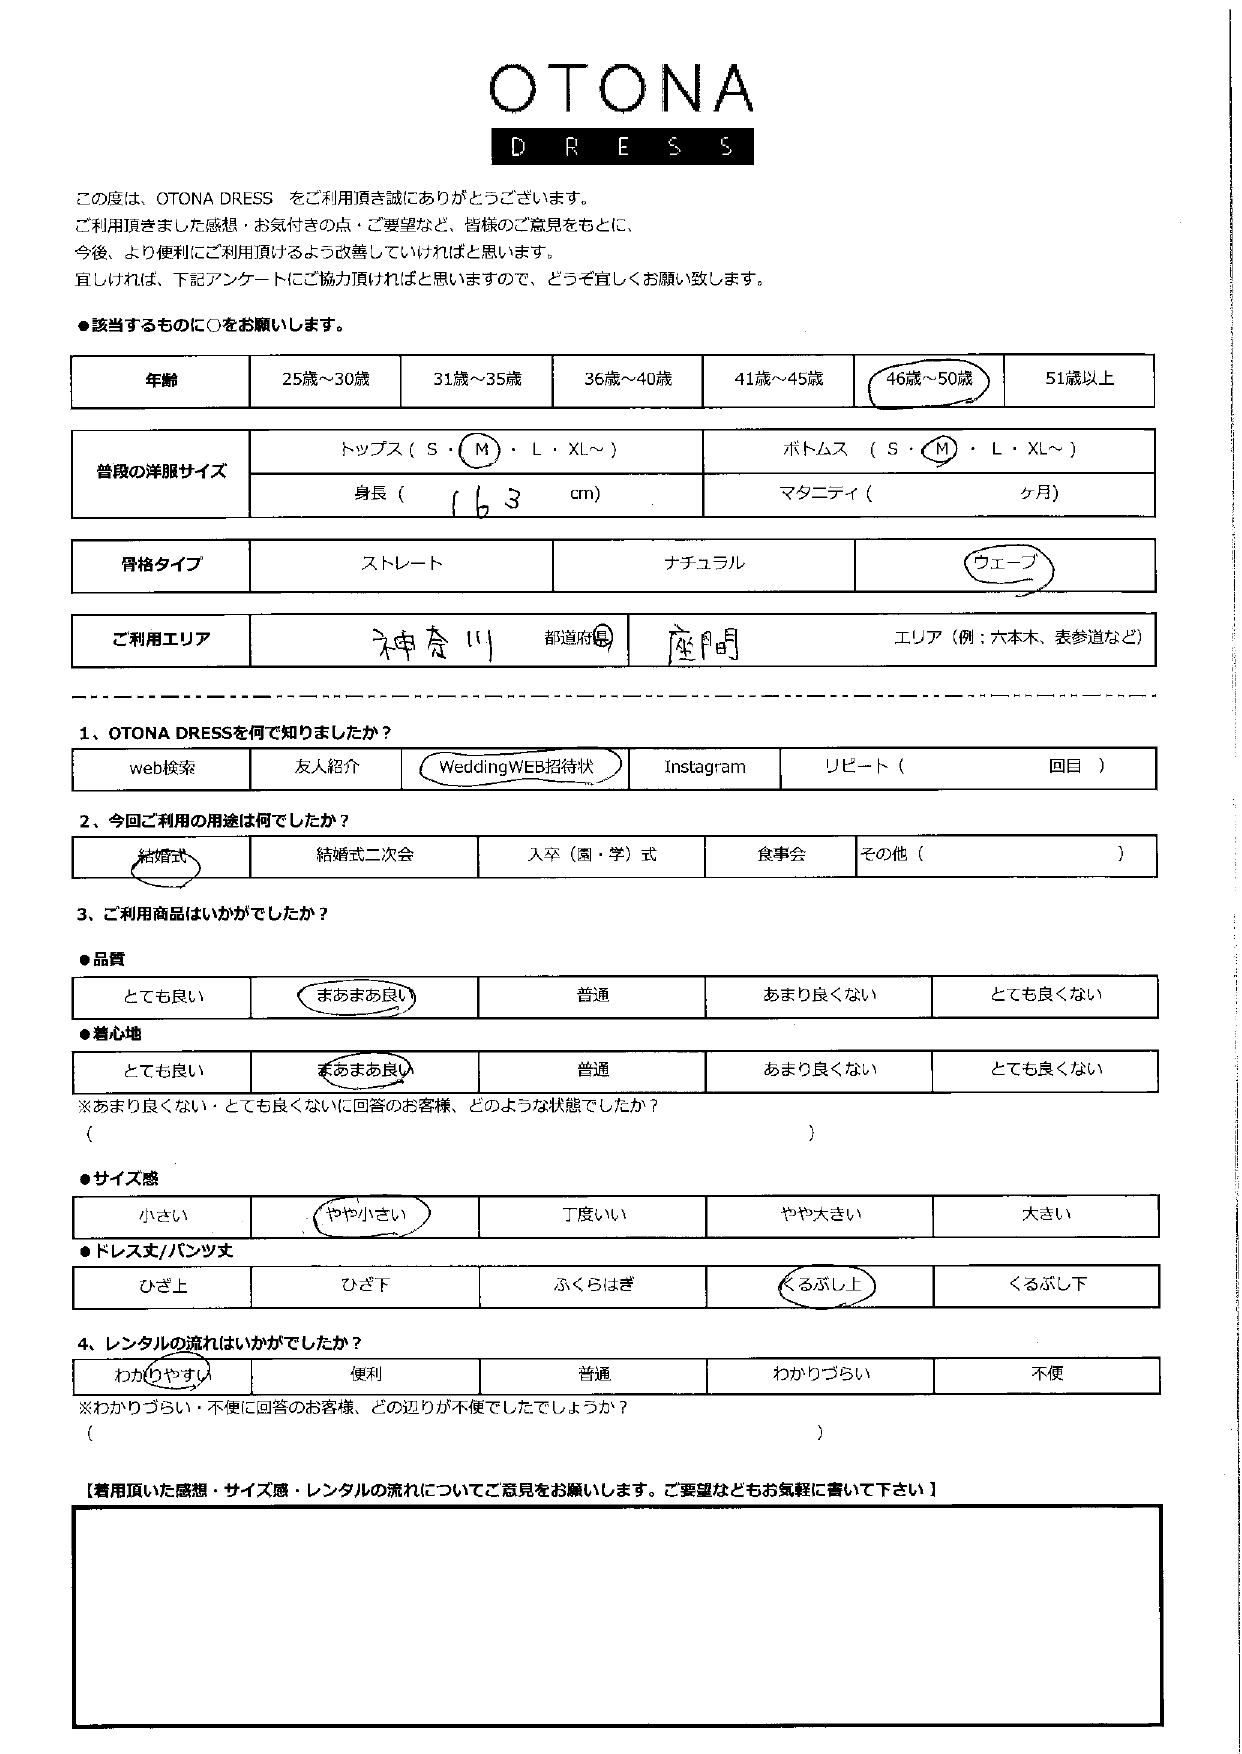 OTONA
DRESS
この度は、OTONA DRESS　をご利用頂き誠にありがとうございます。
ご利用頂きました感想・お気付きの点・ご要望など、皆様のご意見をもとに、
今後、より便利にご利用頂けるよう改善していければと思います。
宜しければ、下記アンケートにご協力頂ければと思いますので、どうぞ宜しくお願い致します。
●該当するものに○をお願いします。
年齢 25歳～30歳 31歳～35歳 36歳～40歳 41歳～45歳 46歳～50歳 51歳以上
普段の洋服サイズ トップス ( S ・ M ・ L ・ XL～ ) ボトムス ( S ・ M ・ L ・ XL～ )
身長 ( 163 cm) マタニティ ( ケ月)
骨格タイプ ストレート ナチュラル ウェーブ
ご利用エリア 神奈川 都道府県 座間 エリア（例；六本木、表参道など）
1、OTONA DRESSを何で知りましたか？
web検索 友人紹介 WeddingWEB招待状 Instagram リピート（ 回目 ）
2、今回ご利用の用途は何でしたか？
結婚式 結婚式二次会 入卒（園・学）式 食事会 その他（ ）
3、ご利用商品はいかがでしたか？
●品質
とても良い まあまあ良い 普通 あまり良くない とても良くない
●着心地
とても良い まあまあ良い 普通 あまり良くない とても良くない
※あまり良くない・とても良くないに回答のお客様、どのような状態でしたか？
（ ）
●サイズ感
小さい やや小さい 丁度いい やや大きい 大きい
●ドレス丈/パンツ丈
ひざ上 ひざ下 ふくらはぎ くるぶし上 くるぶし下
4、レンタルの流れはいかがでしたか？
わかりやすい 便利 普通 わかりづらい 不便
※わかりづらい・不便に回答のお客様、どの辺りが不便でしたでしょうか？
（ ）
【着用頂いた感想・サイズ感・レンタルの流れについてご意見をお願いします。ご要望などもお気軽に書いて下さい】